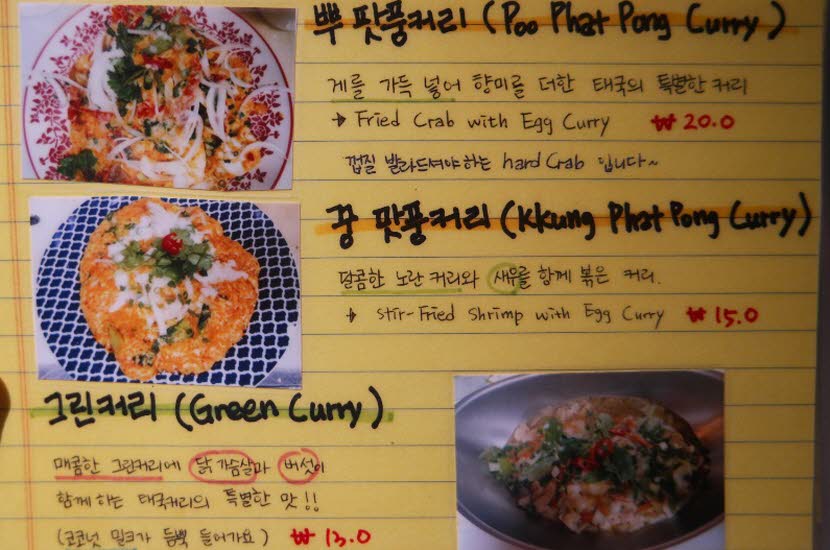 뿌 팟퐁커리 (Poo Phat Pong Curry)
게를 가득 넣어 향미를 더한 태국의 특별한 커리
→ Fried Crab with Egg Curry ₩ 20.0
껍질 발라드셔야하는 hard Crab 입니다~
꿍 팟퐁커리 (Kkung Phat Pong Curry)
달콤한 노란 커리와 새우를 함께 볶은 커리.
→ Stir-Fried Shrimp with Egg Curry ₩ 15.0
그린커리 (Green Curry)
매콤한 그린커리에 닭가슴살과 버섯이
함께 하는 태국커리의 특별한 맛!!
(코코넛 밀크가 듬뿍 들어가요) ₩ 13.0